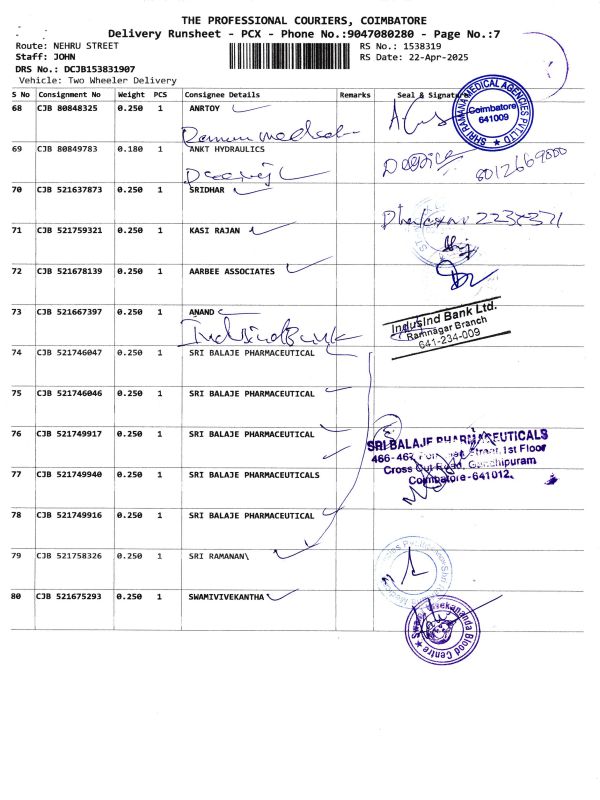 THE PROFESSIONAL COURIERS, COIMBATORE
Delivery Runsheet - PCX - Phone No.:9047080280 - Page No.:7
Route: NEHRU STREET
RS No.: 1538319
Staff: JOHN
RS Date: 22-Apr-2025
DRS No.: DCJB153831907
Vehicle: Two Wheeler Delivery
S No Consignment No Weight PCS Consignee Details Remarks Seal & Signature
68 CJB 80848325 0.250 1 ANRTOY
SHRI RAMANA MEDICAL AGENCIES PVT LTD
Coimbatore
641009
69 CJB 80849783 0.180 1 ANKT HYDRAULICS
8012669800
70 CJB 521637873 0.250 1 SRIDHAR
2234321
71 CJB 521759321 0.250 1 KASI RAJAN
72 CJB 521678139 0.250 1 AARBEE ASSOCIATES
73 CJB 521667397 0.250 1 ANAND
IndusInd Bank
IndusInd Bank Ltd.
Ramnagar Branch
641-234-009
74 CJB 521746047 0.250 1 SRI BALAJE PHARMACEUTICAL
75 CJB 521746046 0.250 1 SRI BALAJE PHARMACEUTICAL
76 CJB 521749917 0.250 1 SRI BALAJE PHARMACEUTICAL
SRI BALAJE PHARMACEUTICALS
Street, 1st Floor
Cross Cut Road, Gandhipuram
Coimbatore-641012.
77 CJB 521749940 0.250 1 SRI BALAJE PHARMACEUTICALS
78 CJB 521749916 0.250 1 SRI BALAJE PHARMACEUTICAL
79 CJB 521758326 0.250 1 SRI RAMANAN\
80 CJB 521675293 0.250 1 SWAMIVIVEKANTHA
Swami Vivekananda Blood Centre